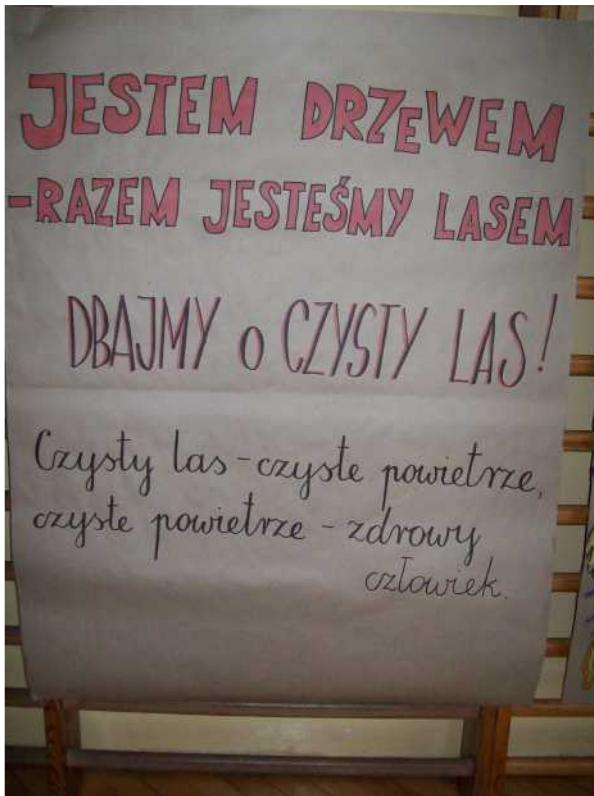 JESTEM DRZEWEM
-RAZEM JESTEŚMY LASEM
DBAJMY o CZYSTY LAS!
Czysty las - czyste powietrze,
czyste powietrze - zdrowy
człowiek.